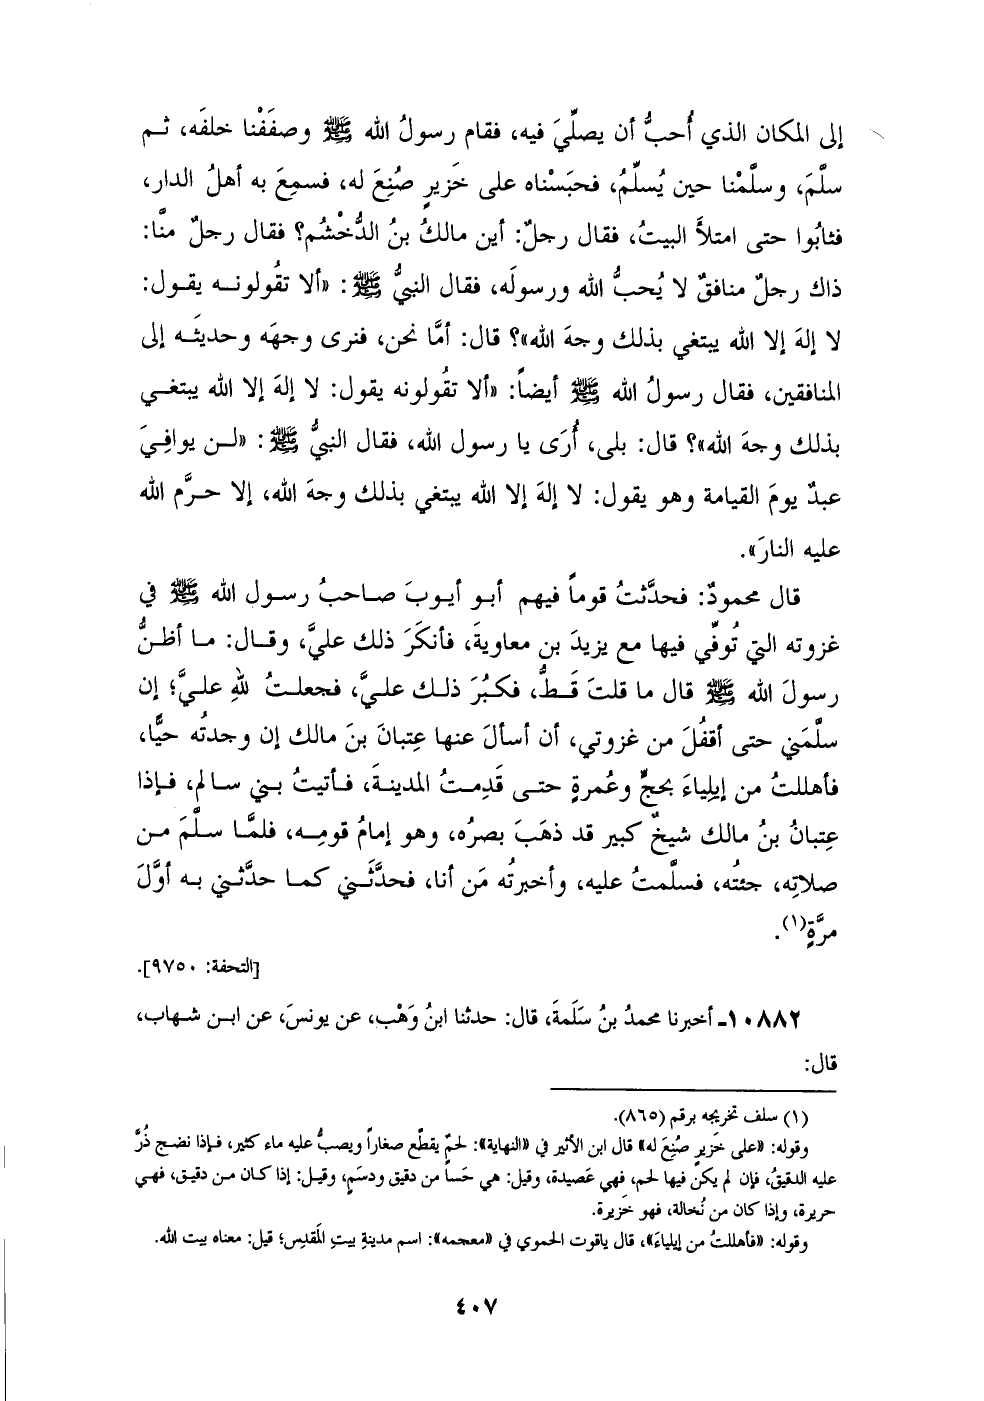 إلى المكان الذي أُحبُّ أن يصلّيَ فيه، فقام رسولُ الله ﷺ وصفَفْنا خلفَه، ثم
سلَّمَ، وسلَّمْنا حين يُسلِّمُ، فحبَسْناه على خَزيرٍ صُنِعَ له، فسمِعَ به أهلُ الدار،
فثابُوا حتى امتلأَ البيتُ، فقال رجلٌ: أين مالكُ بنُ الدُّخْشُم؟ فقال رجلٌ منَّا:
ذاك رجلٌ منافقٌ لا يُحبُّ الله ورسولَه، فقال النبيُّ ﷺ: «ألا تقُولونه يقول:
لا إلهَ إلا الله يبتغي بذلك وجهَ الله»؟ قال: أمَّا نحن، فنرى وجهَه وحديثَه إلى
المنافقين، فقال رسولُ الله ﷺ أيضاً: «ألا تقُولونه يقول: لا إلهَ إلا الله يبتغي
بذلك وجهَ الله»؟ قال: بلى، أُرَى يا رسول الله، فقال النبيُّ ﷺ: «لن يوافِيَ
عبدٌ يومَ القيامة وهو يقول: لا إلهَ إلا الله يبتغي بذلك وجهَ الله، إلا حرَّم الله
عليه النارَ».
قال محمودٌ: فحدَّثتُ قوماً فيهم أبو أيوبَ صاحبُ رسول الله ﷺ في
غزوته التي تُوفِّي فيها مع يزيدَ بن معاويةَ، فأنكَرَ ذلك عليَّ، وقال: ما أظنُّ
رسولَ الله ﷺ قال ما قلتَ قَطُّ، فكبُرَ ذلك عليَّ، فجعلتُ للهِ عليَّ؛ إن
سلَّمَني حتى أقفُلَ من غزوتي، أن أسألَ عنها عِتبانَ بنَ مالك إن وجدتُه حيًّا،
فأهللتُ من إيلِياءَ بحجٍّ وعُمرةٍ حتى قَدِمتُ المدينةَ، فأتيتُ بني سالم، فإذا
عِتبانُ بنُ مالك شيخٌ كبير قد ذهَبَ بصرُه، وهو إمامُ قومِه، فلمَّا سلَّمَ من
صلاتِه، جئتُه، فسلَّمتُ عليه، وأخبرتُه مَن أنا، فحدَّثَني كما حدَّثني به أوَّلَ
مرَّةٍ(١).
[التحفة: ٩٧٥٠].
١٠٨٨٢ـ أخبرنا محمدُ بنُ سَلَمةَ، قال: حدثنا ابنُ وَهْب، عن يونسَ، عن ابن شهاب،
قال:
(١) سلف تخريجه برقم (٨٦٥).
وقوله: «على خَزيرٍ صُنِعَ له» قال ابن الأثير في «النهاية»: لحمٌ يقطَّع صغاراً ويصبُّ عليه ماء كثير، فإذا نضج ذُرَّ
عليه الدقيقُ، فإن لم يكن فيها لحم، فهي عَصيدة، وقيل: هي حَساً من دقيق ودسَمٍ، وقيل: إذا كان من دقيق، فهي
حريرة، وإذا كان من نُخالة، فهو خَزيرة.
وقوله: «فأهللتُ من إيلياءَ»، قال ياقوت الحموي في «معجمه»: اسم مدينةِ بيتِ المَقدِس؛ قيل: معناه بيت الله.
٤٠٧